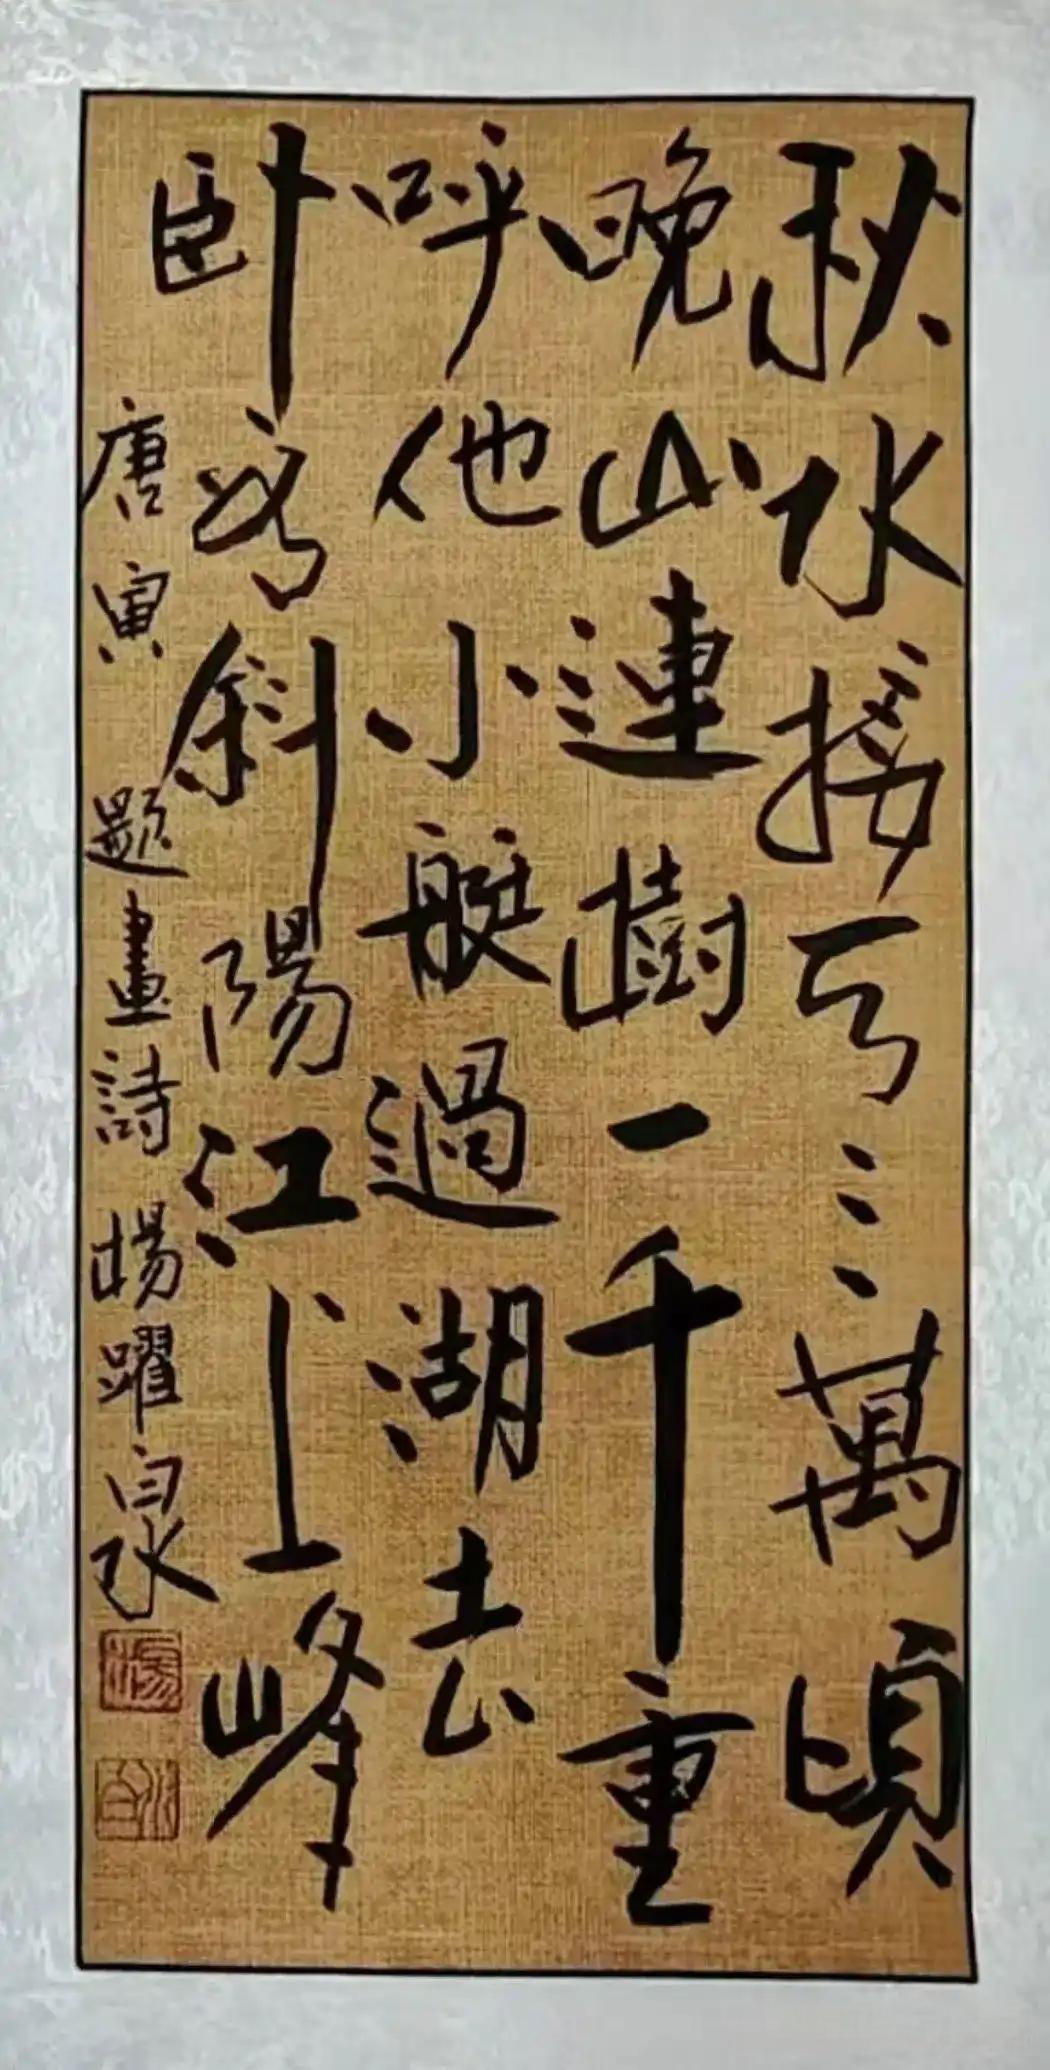 秋水接天三萬頃
晚山連樹一千重
呼他小艇過湖去
臥看斜陽江上峰
唐寅 題畫詩 楊躍泉